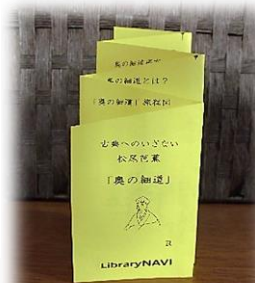 奥の細道とは？
「奥の細道」旅程図
古典へのいざない
松尾芭蕉
「奥の細道」
LibraryNAVI